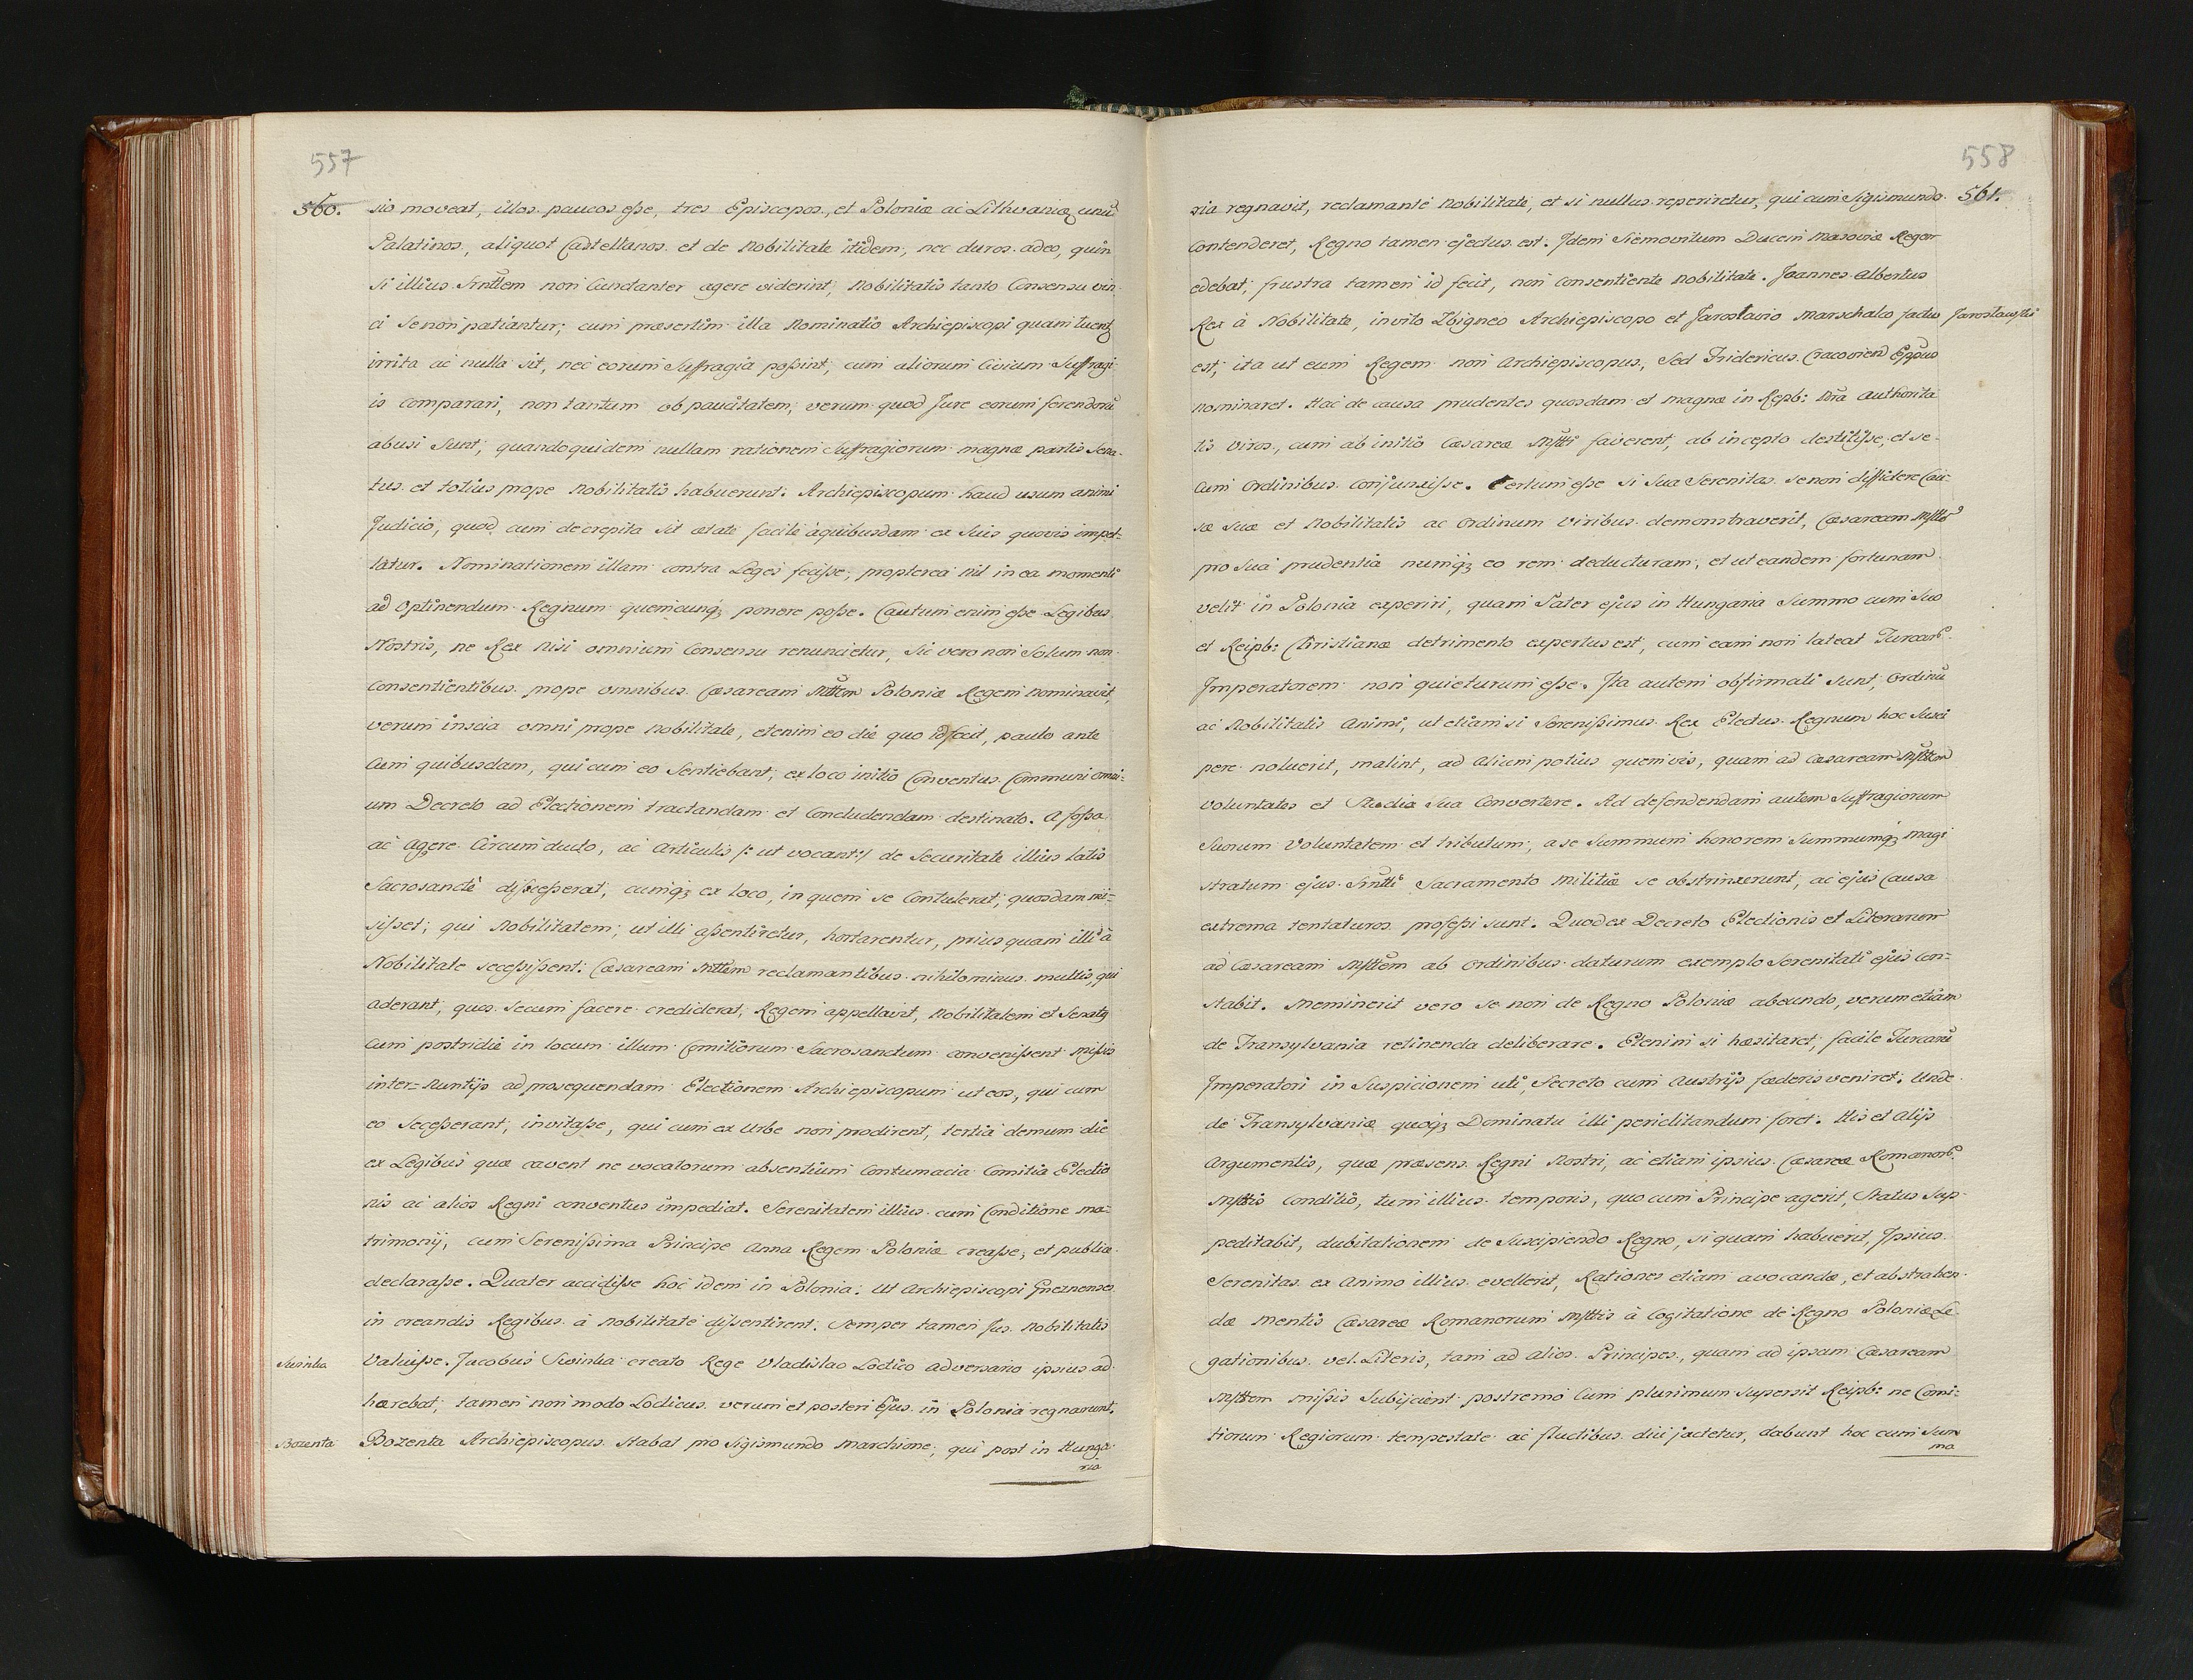 557
560.
sio moveat, illos paucos eſse, tres Episcopos, et Poloniæ ac Lithvaniæ unū
Palatinos, aliquot Castellanos et de Nobilitate itidem, nec duros adeo, quin
si illius Srnttem non Cunctanter agere viderint, Nobilitatis tanto Consensu vin
ci se non patiantur; cum præsertim illa Nominatio Archiepiscopi quam tuent
irrita ac nulla sit, nec eorum Suffragia poſsint, cum aliorum Civium Suffragi
is comparari, non tantum ob paucitatem, verum quod Jure eorum ferendorū
abusi sunt, quandoquidem nullam rationem Suffragiorum magnæ partis Sena-
tus et totius prope Nobilitatis habuerunt. Archiepiscopum haud usum animi
Judicio, quod cum decrepita sit ætate facile a quibusdam ex Suis quovis impel=
latur. Nominationem illam contra Leges feciſse, propterea nil in ea momenti
ad Optinendum Regnum quemcunq ponere poſse. Cautum enim eſse Legibus
Nostris, ne Rex nisi omnium Consensu renuncietur, Sic vero non Solum non
Consentientibus prope omnibus Cæsaream Mttem Poloniæ Regem nominavit,
verum inscia omni prope Nobilitate, etenim eo die quo id fecit, paulo ante
Cum quibusdam, qui cum eo Sentiebant, ex loco initio Conventus Communi omni=
um Decreto ad Electionem tractandam et Concludendam destinato. A foſsa
ac Agere Circumducto, ac Articulis /: ut vocant :/ de Securitate illius latis
Sacrosancte diſceſserat, cumq ex loco, in quem se Contulerat, quosdam mi=
siſset, qui Nobilitatem, ut illi aſsentiretur, hortarentur, prius quam illi à
Nobilitate seceſsiſsent. Cæsaream Mttem reclamantibus nihilominus multis, qui
aderant, quos Secum facere crediderat, Regem appellavit, Nobilitatem et Senatq
Cum postridie in locum illum Comitiorum Sacrosanctum conveniſsent miſsis
inter=Nuntijs ad prosequendam Electionem Archiepiscopum ut eos, qui cum
eo Seceſserant, invitaſse, qui cum ex Urbe non prodirent, tertia demum die
ex Legibus quæ cavent ne vocatorum absentium Contumacia Comitia Electio
nis ac alios Regni conventus impediat. Serenitatem illius cum Conditione ma=
trimonij, cum Sereniſsima Principe Anna Regem Poloniæ creaſse, et publice
declaraſse. Quater accidiſse hoc idem in Polonia. Ut Archiepiscopi Gneznenses
in creandis Regibus à Nobilitate diſsentirent. Semper tamen Jus Nobilitatis
Swinka
Valuiſse. Jacobus Swinka creato Rege Vladislao Loctico adversario ipsius ad
hærebat, tamen non modo Locticus verum et posteri Ejus in Polonia regnarunt.
Bozenta
Bozenta Archiepiscopus Stabat pro Sigismundo Marchione, qui post in Hunga
ria
558
561.
ria regnavit, reclamante Nobilitate, et si nullus reperiretur, qui cum Sigismundo
Contenderet, Regno tamen ejectus est. Idem Siemovitum Ducem Masoviæ Regem
edebat, frustra tamen id fecit, non Consentiente Nobilitate. Joannes Albertus
Rex à Nobilitate, invito Zbigneo Archiepiscopo et Jaroslavio Marschalco factus
est, ita ut eum Regem non Archiepiscopus, Sed Fridericus Cracovien Eppus
nominaret. Hac de causa prudentes quosdam et magnæ in Repb: nra Authorita
tis Viros, cum ab initio Cæsareæ Mtti faverent, ab incepto destitiſse, et se-
Cum Ordinibus Conjunxiſse. Certum eſse si Sua Serenitas se non diffidere Cau=
sæ suæ et Nobilitatis ac Ordinum Viribus demonstraverit, Cæsaream Mttem
pro Sua prudentia numq eo rem deducturam, et ut eandem fortunam
velit in Polonia experiri, quam Pater ejus in Hungaria Summo cum Suo
et Reipb: Christianæ detrimento expertus est, cum eam non lateat Turcar
Imperatorem non quieturum eſse. Ita autem obfirmati Sunt, Ordinū
ac Nobilitatis Animi, ut etiam si Sereniſsimus Rex Electus Regnum hoc Susci
pere noluerit, malint, ad Alium potius quemvis, quam ad Cæsaream Mttem
Voluntates et Studia Sua Convertere. Ad defendendam autem Suffragiorum
Suorum Voluntatem et tributum, a se Summum honorem Summumq Magi
stratum ejus Srntti Sacramento Militiæ se obstrinxerunt, ac ejus Causa
extrema tentaturos profeſsi sunt. Quod ex Decreto Electionis et Literarum
ad Cæsaream Mttem ab Ordinibus datarum exemplo Serenitati ejus Con=
stabit. Meminerit vero se non de Regno Poloniæ abeundo, verum etiam
de Transylvania retinenda deliberare. Etenim si hæsitaret, facile Turcarū
Imperatori in Suspicionem uti Secreto cum Austrijs fœderis veniret. Unde
de Transylvaniæ quoq Dominatu illi periclitandum foret. His et Alijs
Argumentis, quæ præsens Regni Nostri, ac etiam ipsius Cæsareæ Romanor
Mttis conditio, tum illius temporis, quo cum Principe agerit, Status Sup-
peditabit, dubitationem de Suscipiendo Regno, si quam habuerit, Ipsius
Serenitas ex Animo illius evellerit, Rationes etiam avocandæ, et abstrahen
dæ Mentis Cæsareæ Romanorum Mttis à Cogitatione de Regno Poloniæ Le-
gationibus vel Literis, tam ad alios Principes, quam ad ipsam Cæsaream
Mttem miſsis Subijcient postremo Cum plurimum Supersit Reipb: ne Comi=
tiorum Regiorum tempestate ac fluctibus diu jactetur, dabunt hoc cum Sum
ma